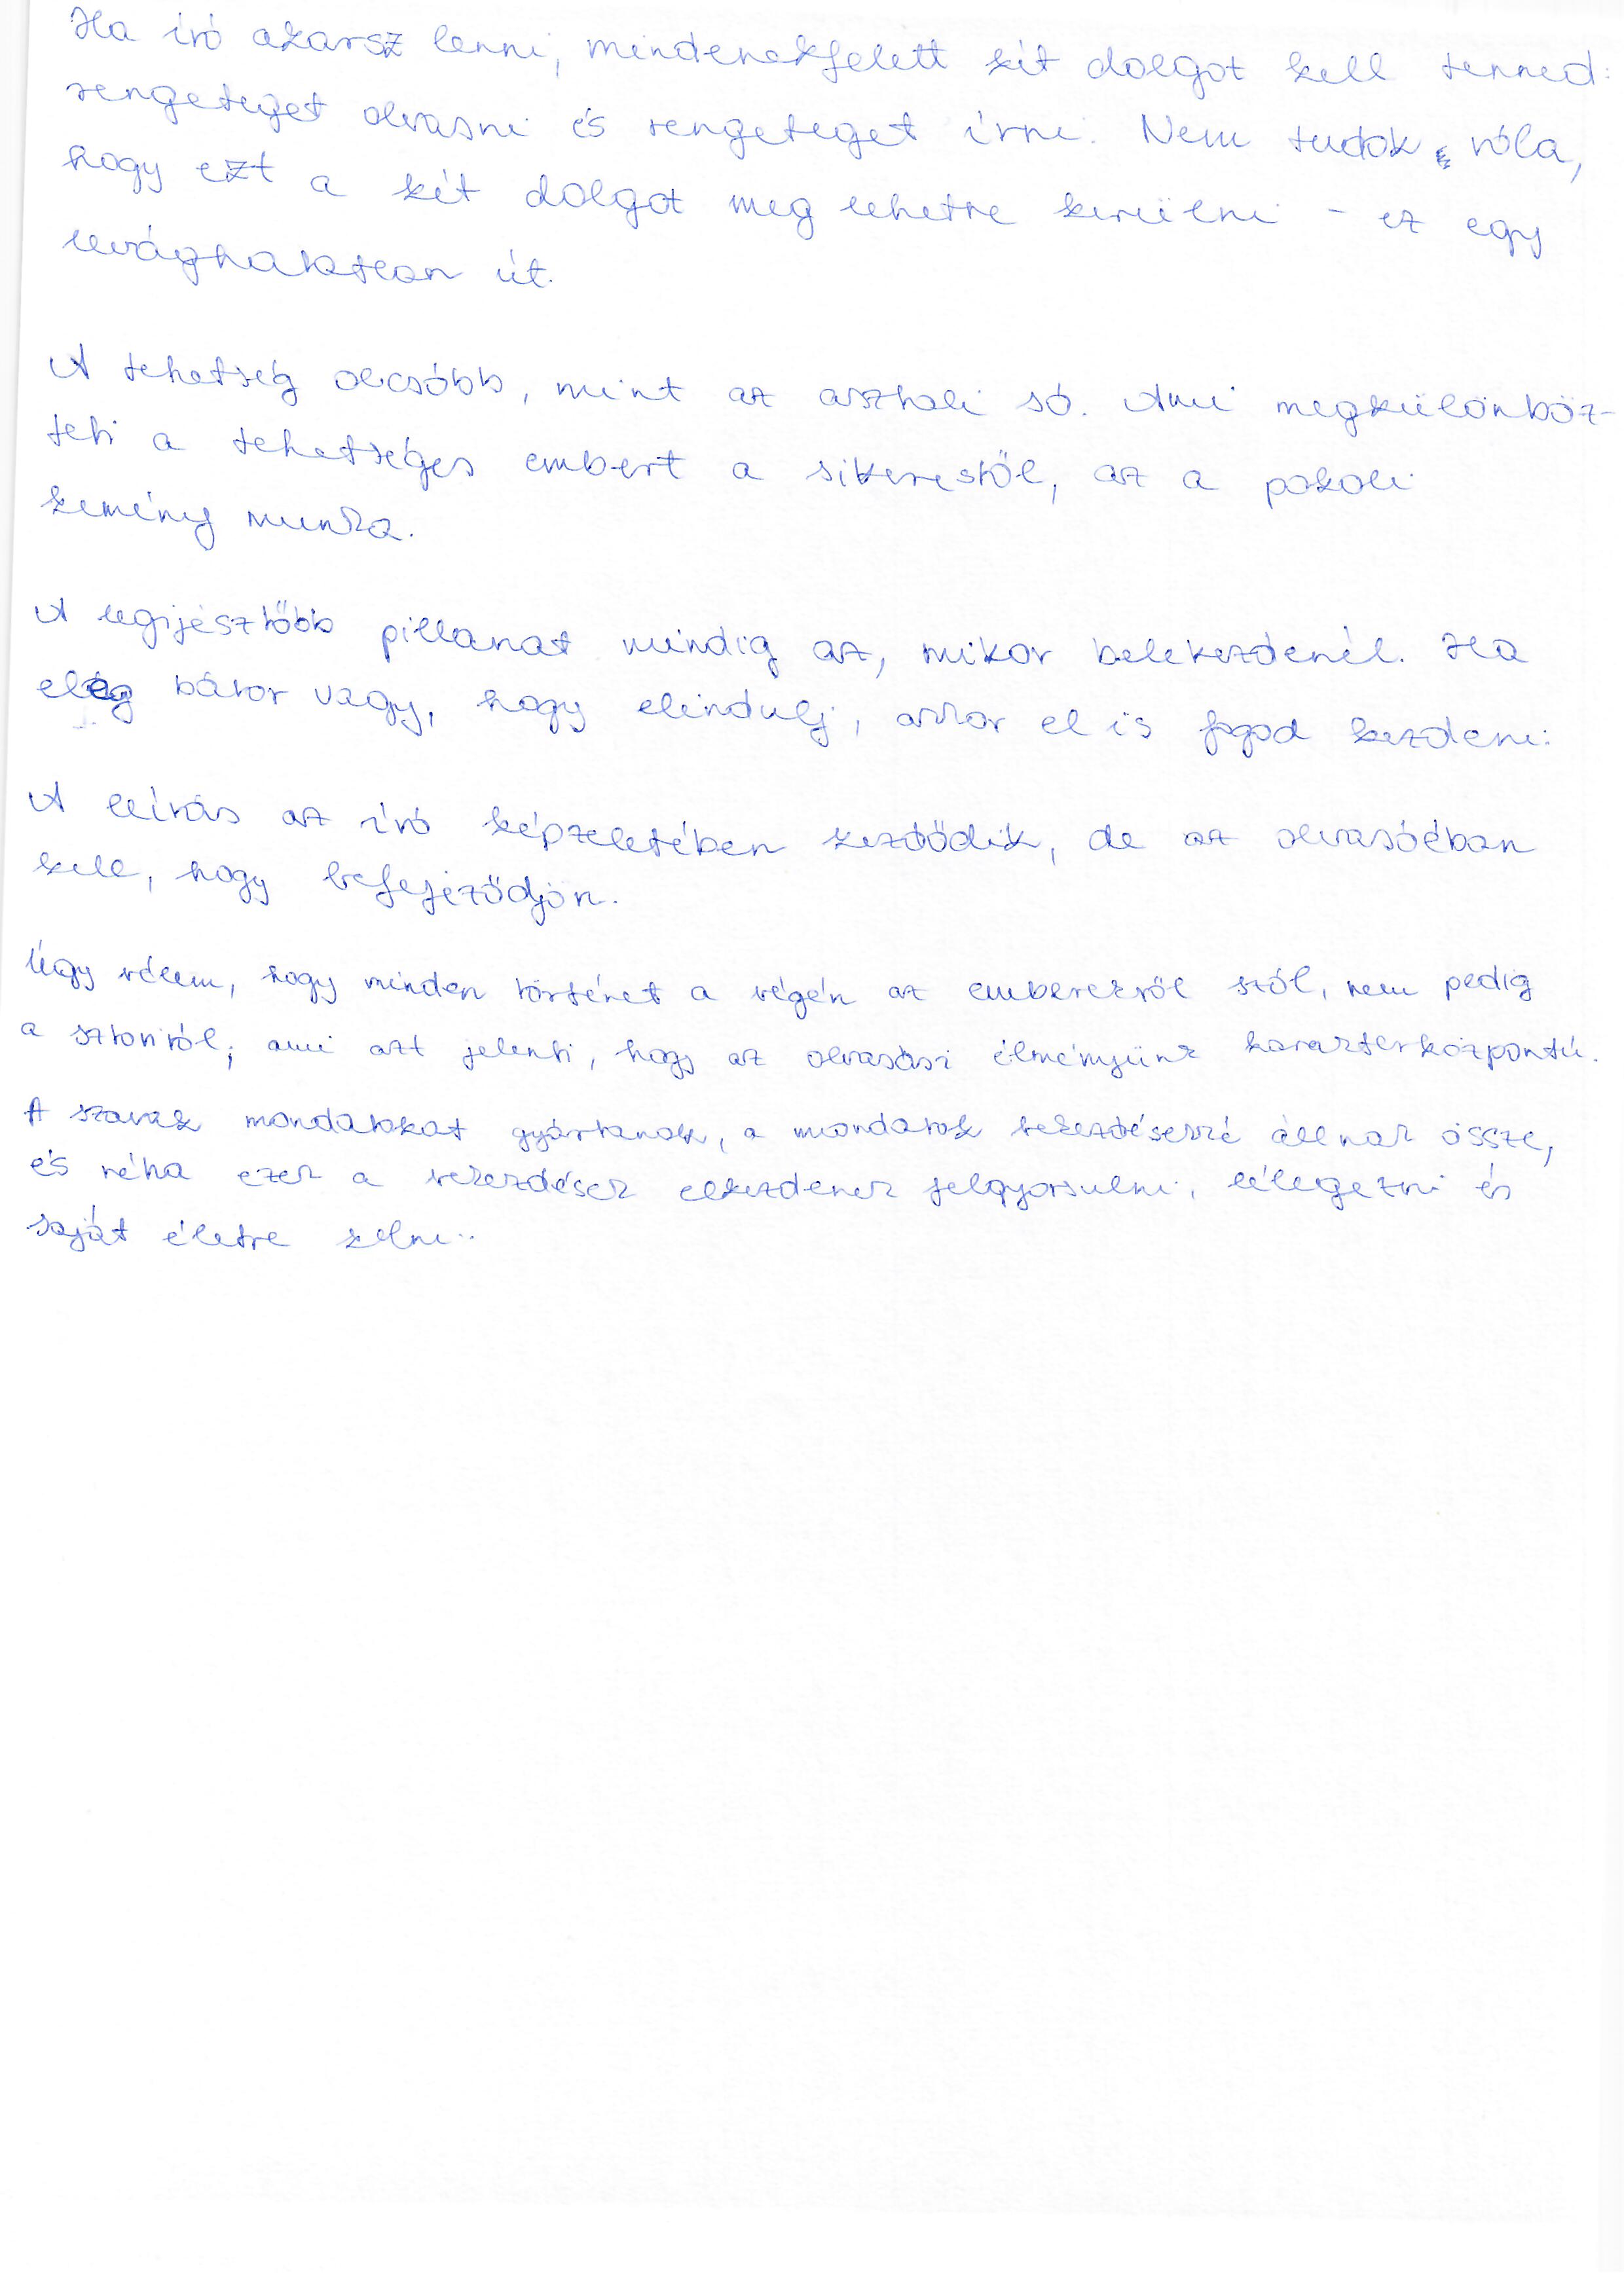 Ha író akarsz lenni, mindenekfelett két dolgot kell tenned:
rengeteget olvasni és rengeteget írni. Nem tudok róla,
hogy ezt a két dolgot meg lehetne kerülni - ez egy
levághatatlan út.
A tehetség olcsóbb, mint az asztali só. Ami megkülönböz-
teti a tehetséges embert a sikerestől, az a pokoli
kemény munka.
A legijesztőbb pillanat mindig az, mikor belekezdenél. Ha
elég bátor vagy, hogy elindulj, akkor el is fogod kezdeni.
A leírás az író képzeletében kezdődik, de az olvasóéban
kell, hogy befejeződjön.
Úgy vélem, hogy minden történet a végén az emberekről szól, nem pedig
a sztoriról; ami azt jelenti, hogy az olvasási élményünk karakterközpontú.
A szavak mondatokat gyártanak, a mondatok bekezdésekké állnak össze,
és néha ezek a bekezdések elkezdenek felgyorsulni, lélegezni és
saját életre kelni.